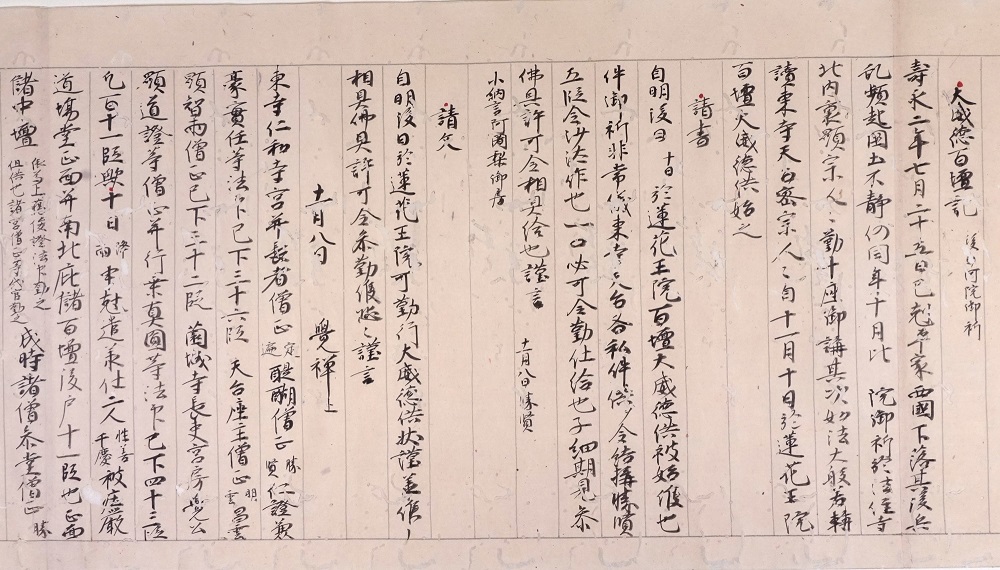 大威徳百壇記 後白河院御祈
壽永二年七月二十五日巳剋平家西國下落其後兵
乱頻起國土不静仍同年十月比 院御祈於法住寺
北内裏顕宗人々勤十座御講其次妙法大般若轉
讀東寺天台密宗人々自十一月十日於蓮花王院
百壇大威徳供始之
請書
自明後日 十日 於蓮花王院百壇大威徳供被始修也
件御祈非常儀東寺天台各私件僧令結構勝順
五段令沙汰作也一口必可令勤仕給也子細期見参
佛具許可令相具給也謹言
十一月八日 勝賢
小納言阿闍梨御房
請文
自明後日於蓮花王院可勤行大威徳供状謹承候了
相具佛具許可令参勤候恐々謹言
十一月八日 覺禅上
東寺仁和寺宮并長者僧正 定遍 醍醐僧正 勝賢 仁證歟
豪實任等法印已下三十六段 天台座主僧正 明雲 昌雲
顕智両僧正已下三十二段 薗城寺長吏宮房覺公
顕道證等僧正并行乗真圓等法印已下四十三段
已百十一段歟十日 降雨 申剋遣承仕二人 性善 千慶 被庄嚴
道場堂正面并南北庇諸百壇後戸十一段也正面
諸中壇 戌時諸僧参堂僧正 勝